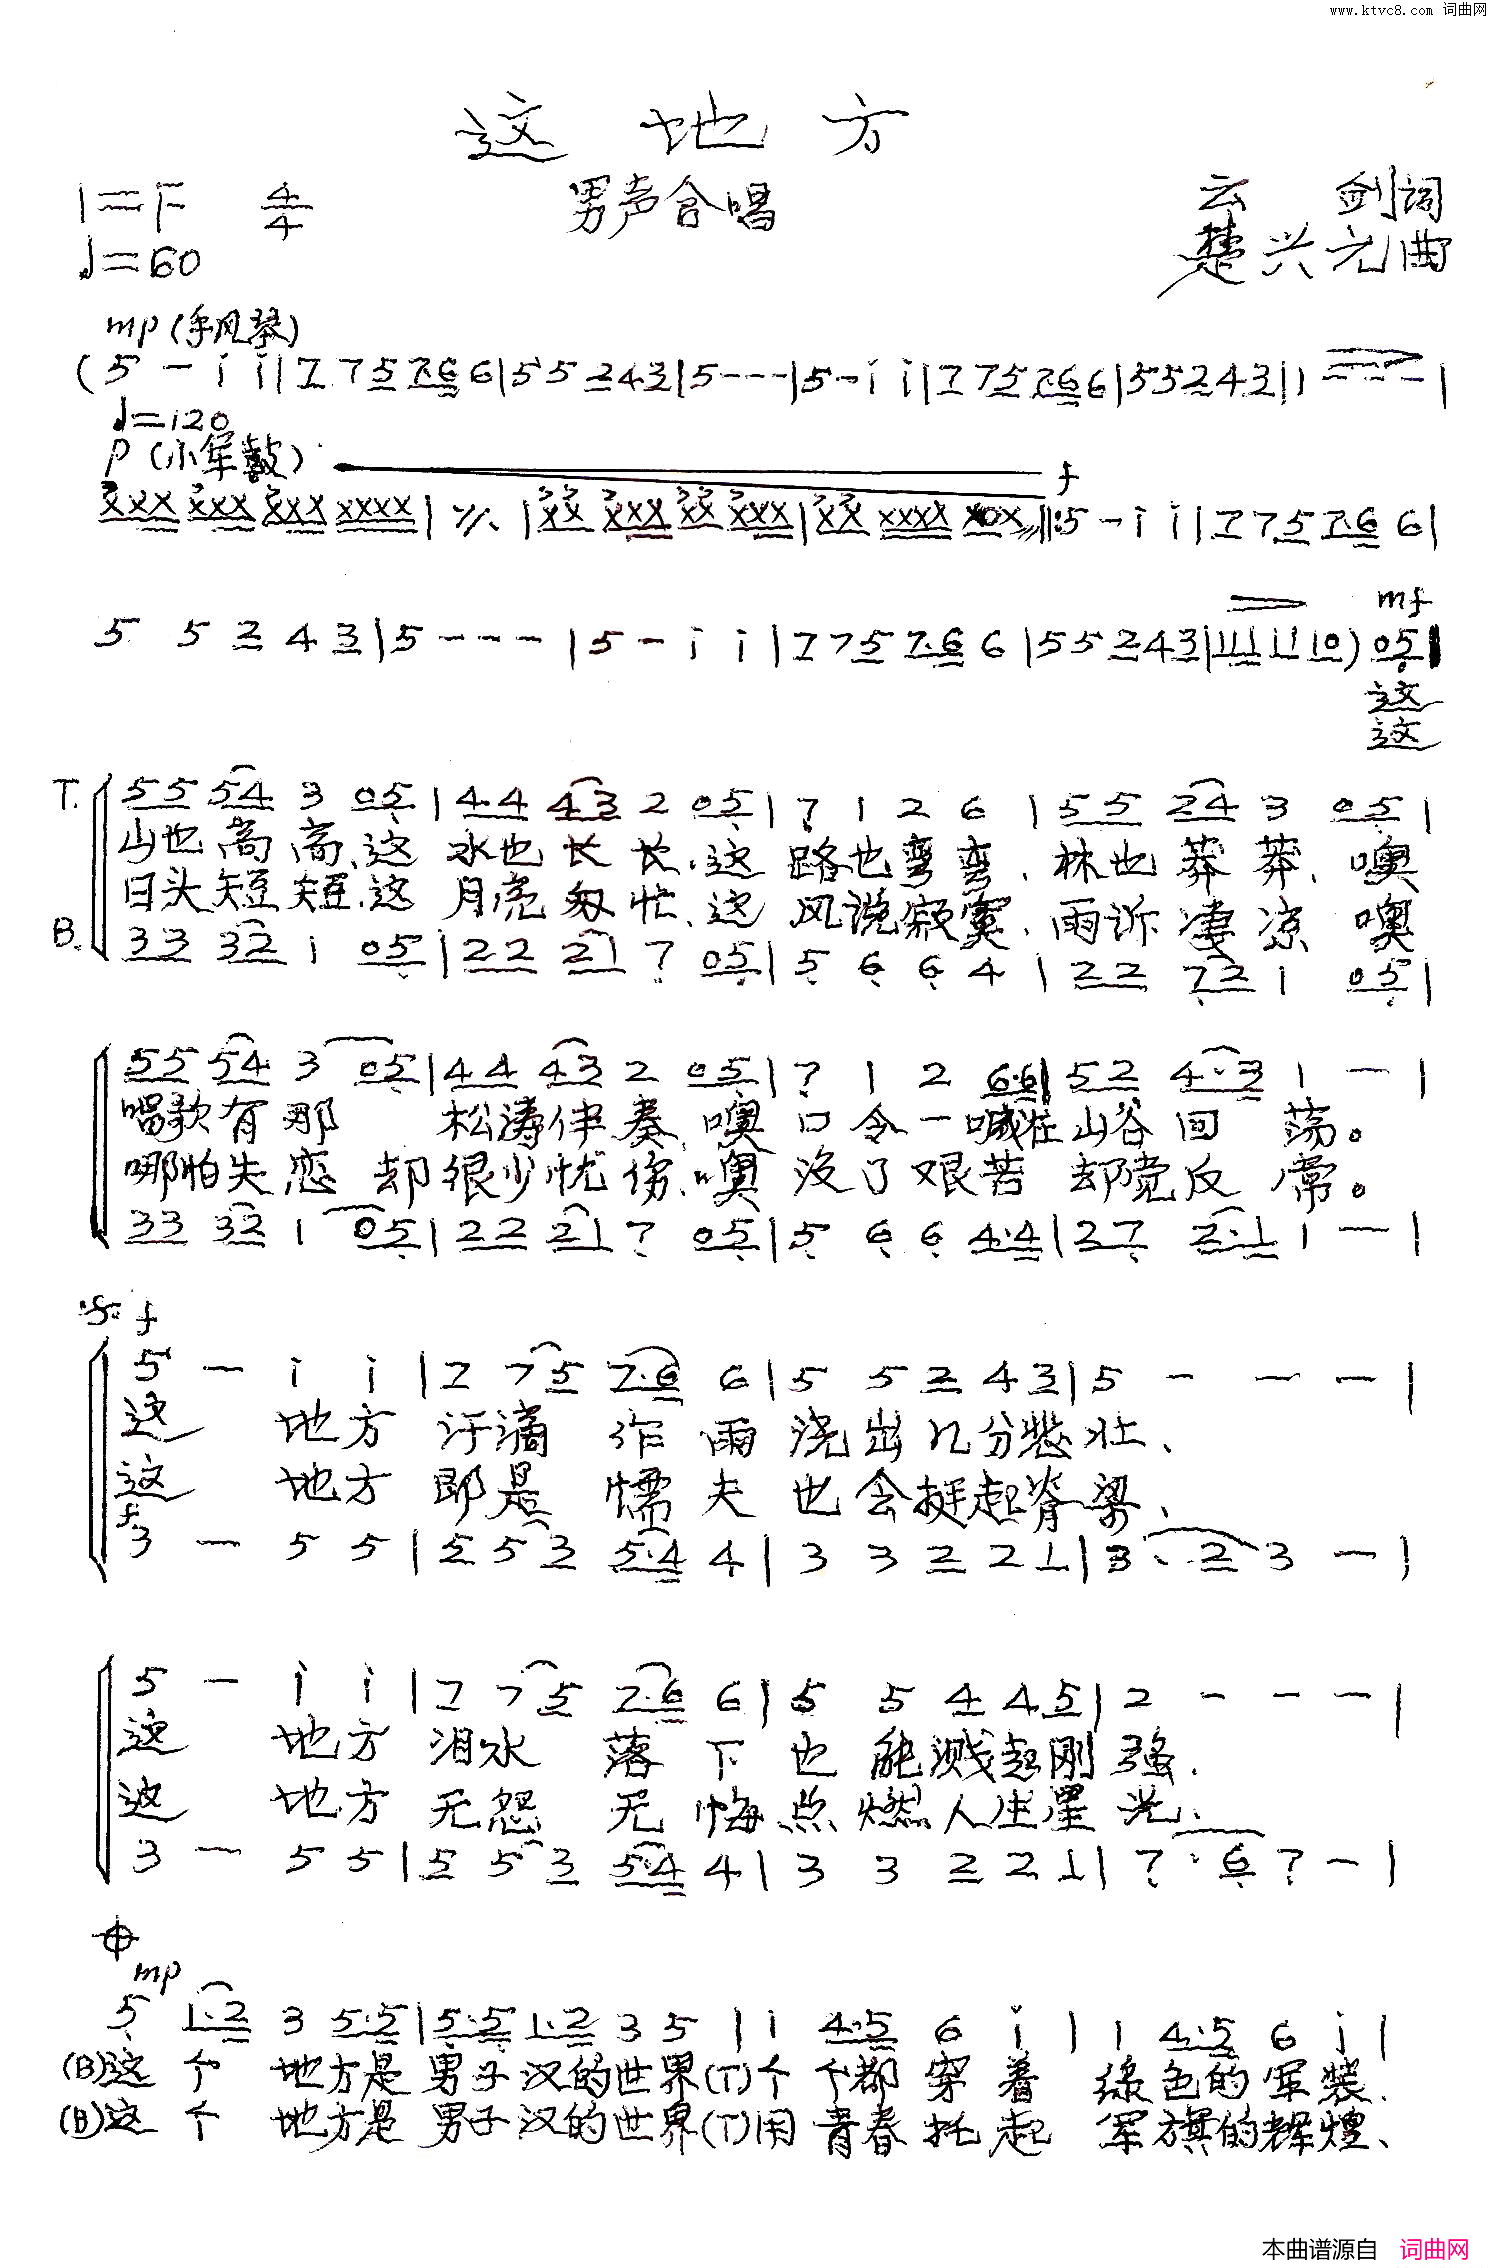 www.ktvc8.com 词曲网
这地方
1=F 4/4 男声合唱 云剑词
♩=60 楚兴元曲
mp (手风琴)
( 5 - i i | 7 7 5 7·6 6 | 5 5 2 4 3 | 5 - - - | 5 - i i | 7 7 5 7·6 6 | 5 5 2 4 3 | 1 - - - |
♩=120
p (小军鼓) f
xxx xxx xxx xxxx | ٪ | xx xxx xx xxx | xx xxxx x0x ‖: 5 - i i | 7 7 5 7·6 6 |
mf
5 5 2 4 3 | 5 - - - | 5 - i i | 7 7 5 7·6 6 | 5 5 2 4 3 | 11 11 10 ) 05 |
这
这
T. 55 54 3 05 | 44 43 2 05 | 7 1 2 6 | 55 24 3 05 |
山也高高、这水也长长、这路也弯弯、林也莽莽、噢
日头短短、这月亮匆忙、这风说寂寞、雨诉凄凉 噢
B. 33 32 1 05 | 22 21 7 05 | 5 6 6 4 | 22 72 1 05 |
55 54 3 05 | 44 43 2 05 | 7 1 2 6·6 | 52 4·3 1 - |
唱歌有那 松涛伴奏、噢口令一喊在山谷回荡。
哪怕失恋 却很少忧伤、噢没了艰苦 却觉反常。
33 32 1 05 | 22 21 7 05 | 5 6 6 4·4 | 27 2·1 1 - |
f
5 - i i | 7 7 5 7·6 6 | 5 5 2 4 3 | 5 - - - |
这 地方 汗滴作雨浇出几分悲壮、
这 地方 即是懦夫也会挺起脊梁、
f
3 - 5 5 | 5 5 3 5·4 4 | 3 3 2 2 1 | 3 · 2 3 - |
5 - i i | 7 7 5 7·6 6 | 5 5 4 4 5 | 2 - - - |
这 地方 泪水落下也能溅起刚强、
这 地方 无怨无悔点燃人生星光、
3 - 5 5 | 5 5 3 5·4 4 | 3 3 2 2 1 | 7 · 6 7 - |
mp
5 1·2 3 5·5 | 5·5 1·2 3 5 | 1 4·5 6 i | 1 4·5 6 i |
(B)这个 地方是男子汉的世界(T)个个都穿着 绿色的军装、
(B)这个 地方是男子汉的世界(T)用青春托起 军旗的辉煌、
本曲谱源自 词曲网